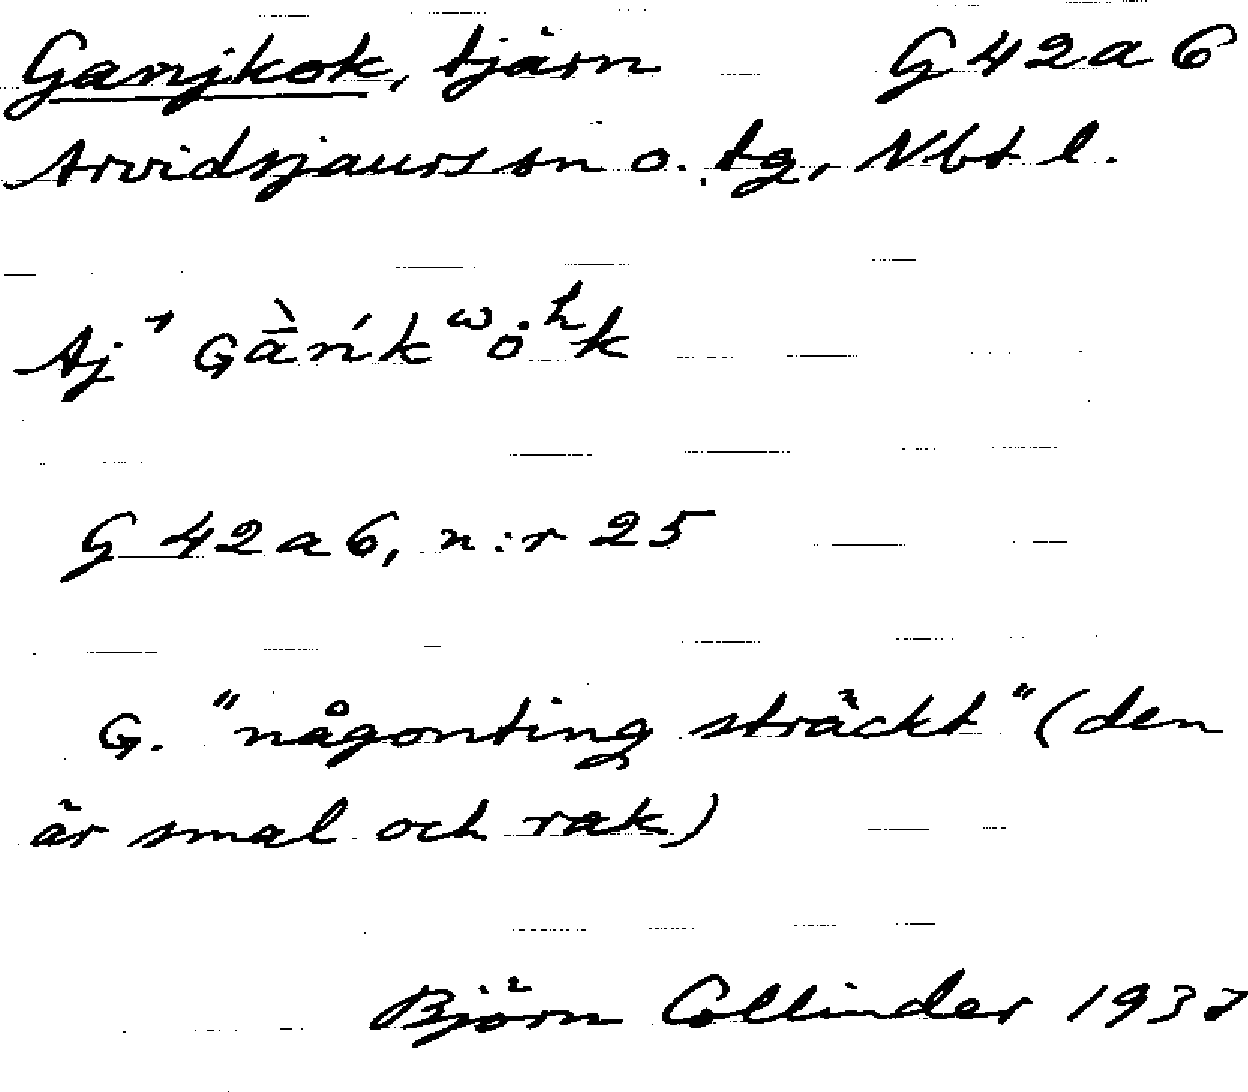 Ganjkok, tjärn G 42 a 6
Arvidsjaurs sn o. tg, Nbt l.
Aj
G 42 a 6, n:r 25
G. "någonting sträckt" (den
är smal och rak)
Björn Collinder 1937